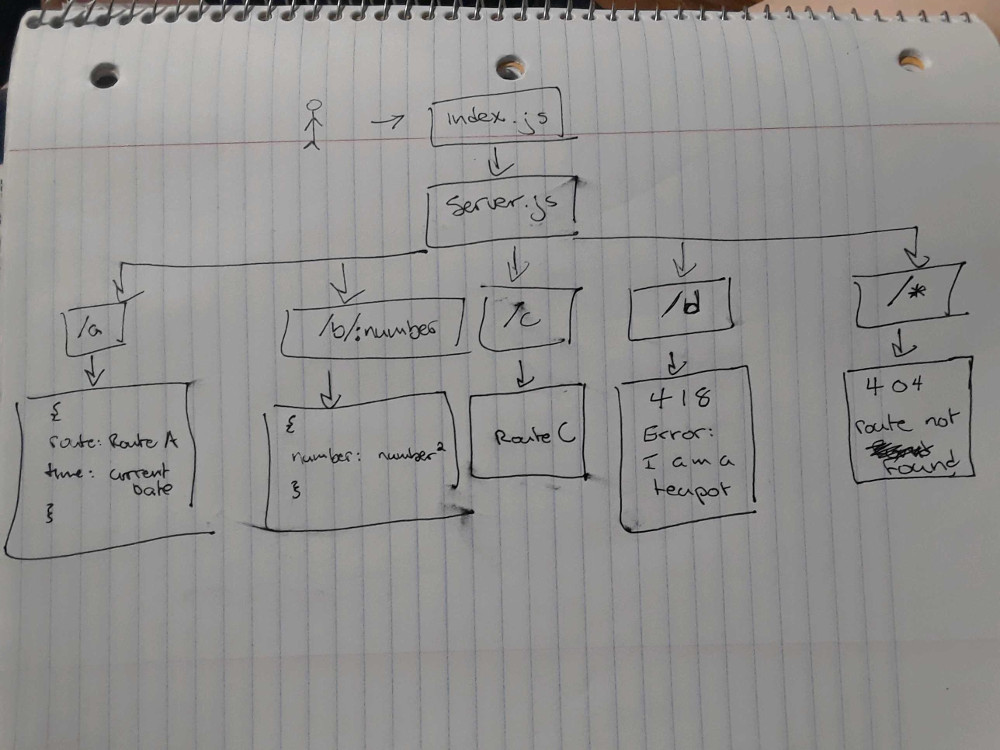 index.js
Server.js
/a
/b/:number
/c
/d
/*
{
route: Route A
time: current
Date
}
{
number: number²
}
Route C
418
Error:
I am a
teapot
404
route not
found